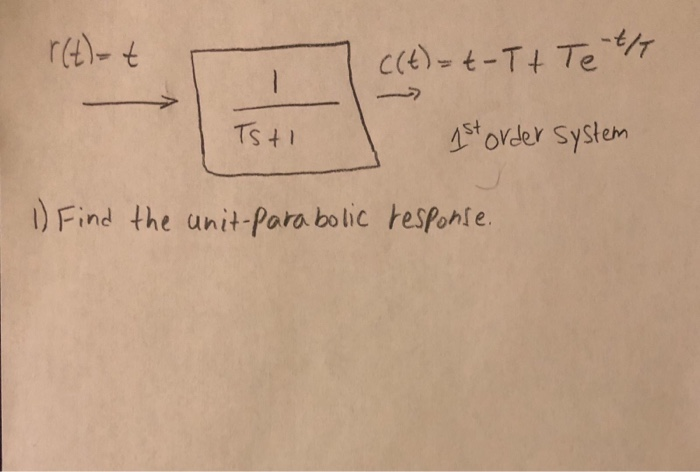 r(t) = t
1
Ts+1
c(t) = t - T + Te^{-t/T}
1st order system
1) Find the unit-parabolic response.